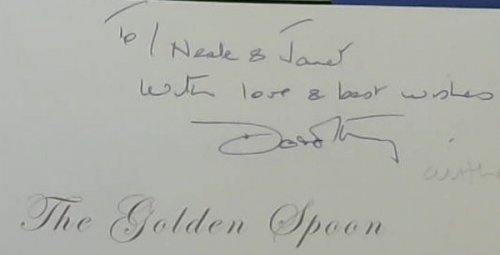 To/ Neale & Janet
With love & best wishes
Dorothy
The Golden Spoon